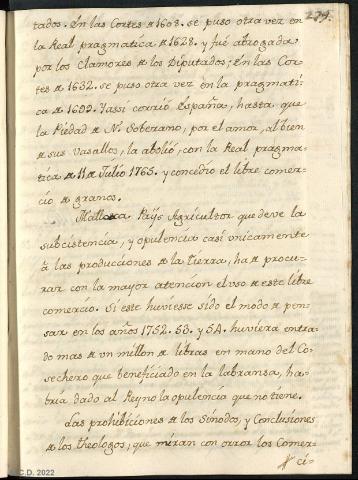 279.
tados. En las Cortes de 1608. se puso otra vez en
la Real pragmatica de 1628. y fué abrogada
por los Clamores de los Diputados; En las Cor-
tes de 1632. se puso otra vez en la pragmati-
ca de 1699. Yassi corrió España, hasta que
la Piedad de N. Soberano, por el amor, al bien
de sus vasallos, la abolió, con la Real pragma-
tica de 11 de Julio 1765. y concedió el libre comer-
cio de granos.
Mallorca Pays Agricultor que deve la
subcistencia, y opulencia casi unicamente
à las producciones de la tierra, ha de procu-
rar con la mayor atencion el uso de este libre
comercio. Si este huviesse sido el modo de pen-
sar en los años 1752. 53. y 54. huviera entra-
do mas de un millon de libras en mano del Co-
sechero que beneficiado en la labransa, ha-
bria dado al Reyno la opulencia que no tiene.
Las prohibiciones de los Sinodos, y Conclusiones
de los theologos, que miran con orror los Comer-
ci-
C.D. 2022